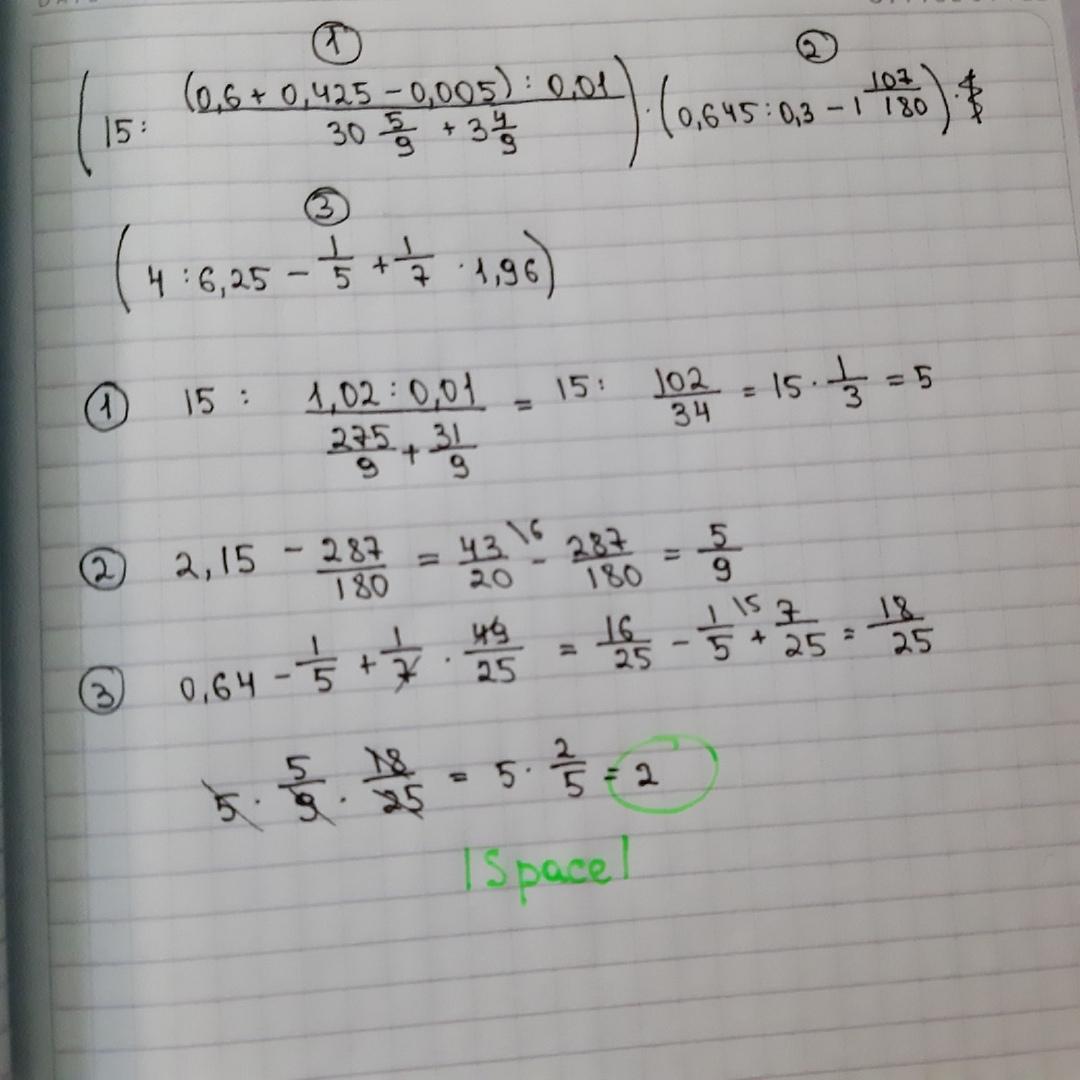 ①
②
(15 : ((0,6 + 0,425 − 0,005) : 0,01) / (30 5/9 + 3 4/9)) · (0,645 : 0,3 − 1 107/180) ·
③
(4 : 6,25 − 1/5 + 1/7 · 1,96)
① 15 : (1,02 : 0,01) / (275/9 + 31/9) = 15 : 102/34 = 15 · 1/3 = 5
② 2,15 − 287/180 = 43/20 − 287/180 = 5/9
③ 0,64 − 1/5 + 1/7 · 49/25 = 16/25 − 1/5 \5 + 7/25 = 18/25
5 · 5/9 · 18/25 = 5 · 2/5 = 2
|Space|